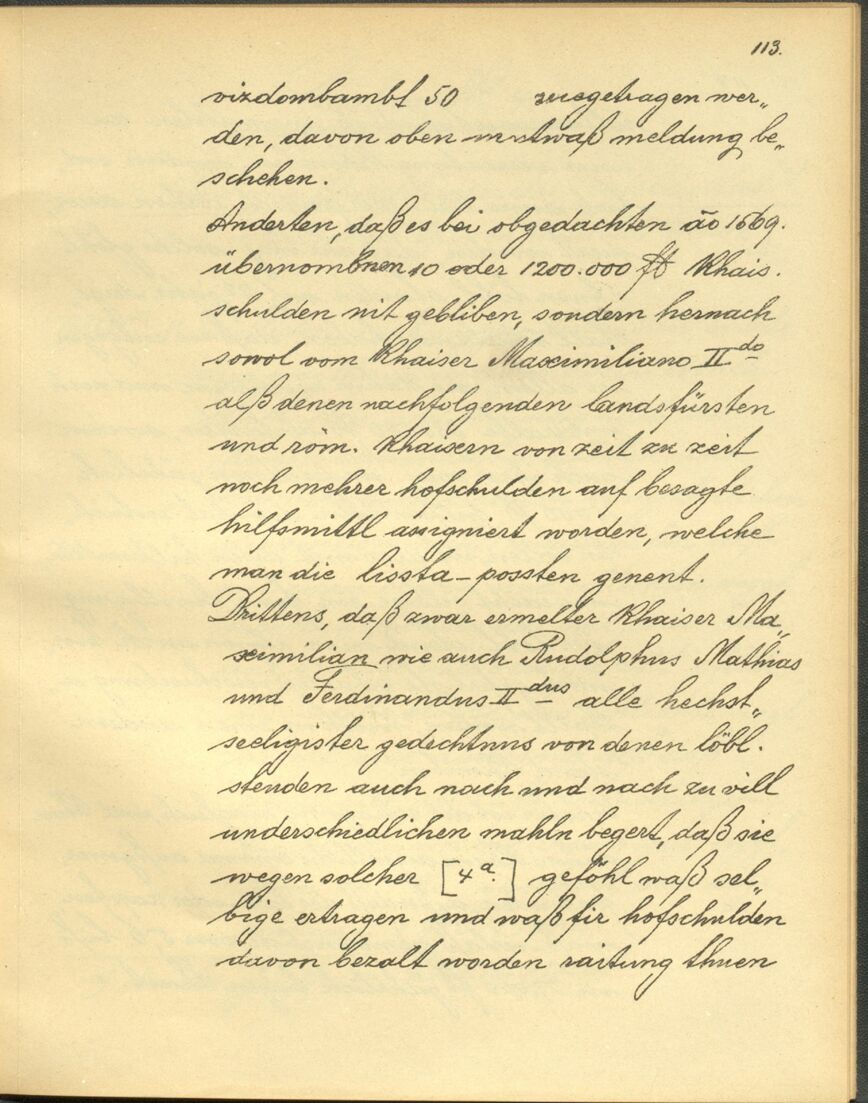 113.
vizdombambt 50 zuegetragen wer„
den, davon oben mit etwaß meldung be„
schehen.
Anderten, daß es bei obgedachten ão 1569.
übernombnen 10 oder 1200.000 ft Khais.
schulden nit gebliben, sondern hernach
sowol vom Khaiser Maximiliano II do
alß denen nachfolgenden landsfürsten
und röm. Khaisern von zeit zu zeit
noch mehrer hofschulden auf besagte
hilfsmittl assigniert worden, welche
man die lissta-possten genent.
Drittens, daß zwar ermelter Khaiser Ma„
ximilian wie auch Rudolphus Mathias
und Ferdinandus II dus alle hechst„
seeligister gedechtnus von denen löbl.
stenden auch nach und nach zu vill
underschiedlichen mahln begert, daß sie
wegen solcher [4 a.] geföhl waß sel„
bige ertragen und waß fir hofschulden
davon bezalt worden raitung thuen